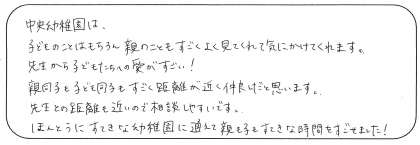 中央幼稚園は、
子どものことはもちろん親のこともすごくよく見てくれて気にかけてくれます。
先生から子どもたちへの愛がすごい!
親同子も子ども同子もすごく距離が近く仲良しだと思います。
先生との距離も近いので相談しやすいです。
ほんとうにすてきな幼稚園に通えて親も子もすてきな時間をすごせました!